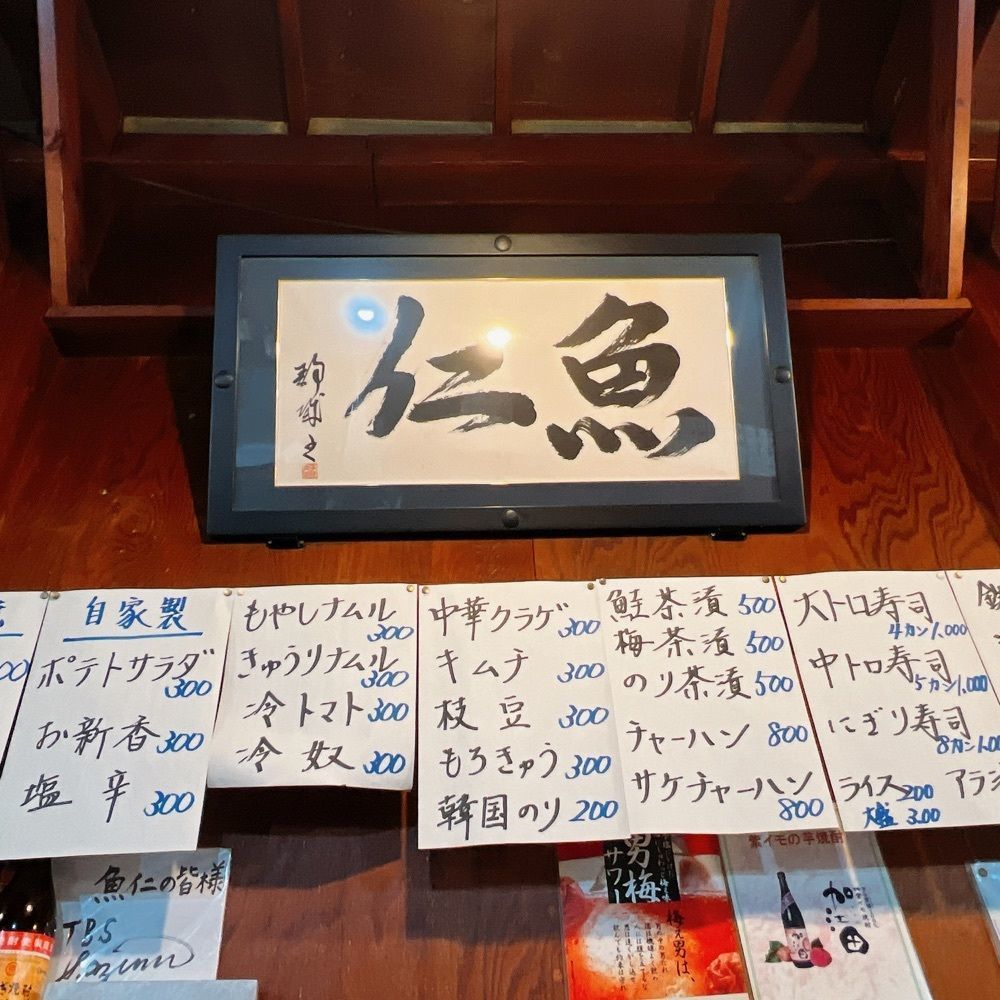 魚仁
自家製
ポテトサラダ 300
お新香 300
塩辛 300
もやしナムル 300
きゅうりナムル 300
冷トマト 300
冷奴 300
中華クラゲ 300
キムチ 300
枝豆 300
もろきゅう 300
韓国のり 200
鮭茶漬 500
梅茶漬 500
のり茶漬 500
チャーハン 800
サケチャーハン 800
大トロ寿司 4カン1.000
中トロ寿司 5カン1.000
にぎり寿司
ライス 200
大盛 300
魚仁の皆様
TBS
男梅
サワー
梅え男は、
紫イモの芋焼酎